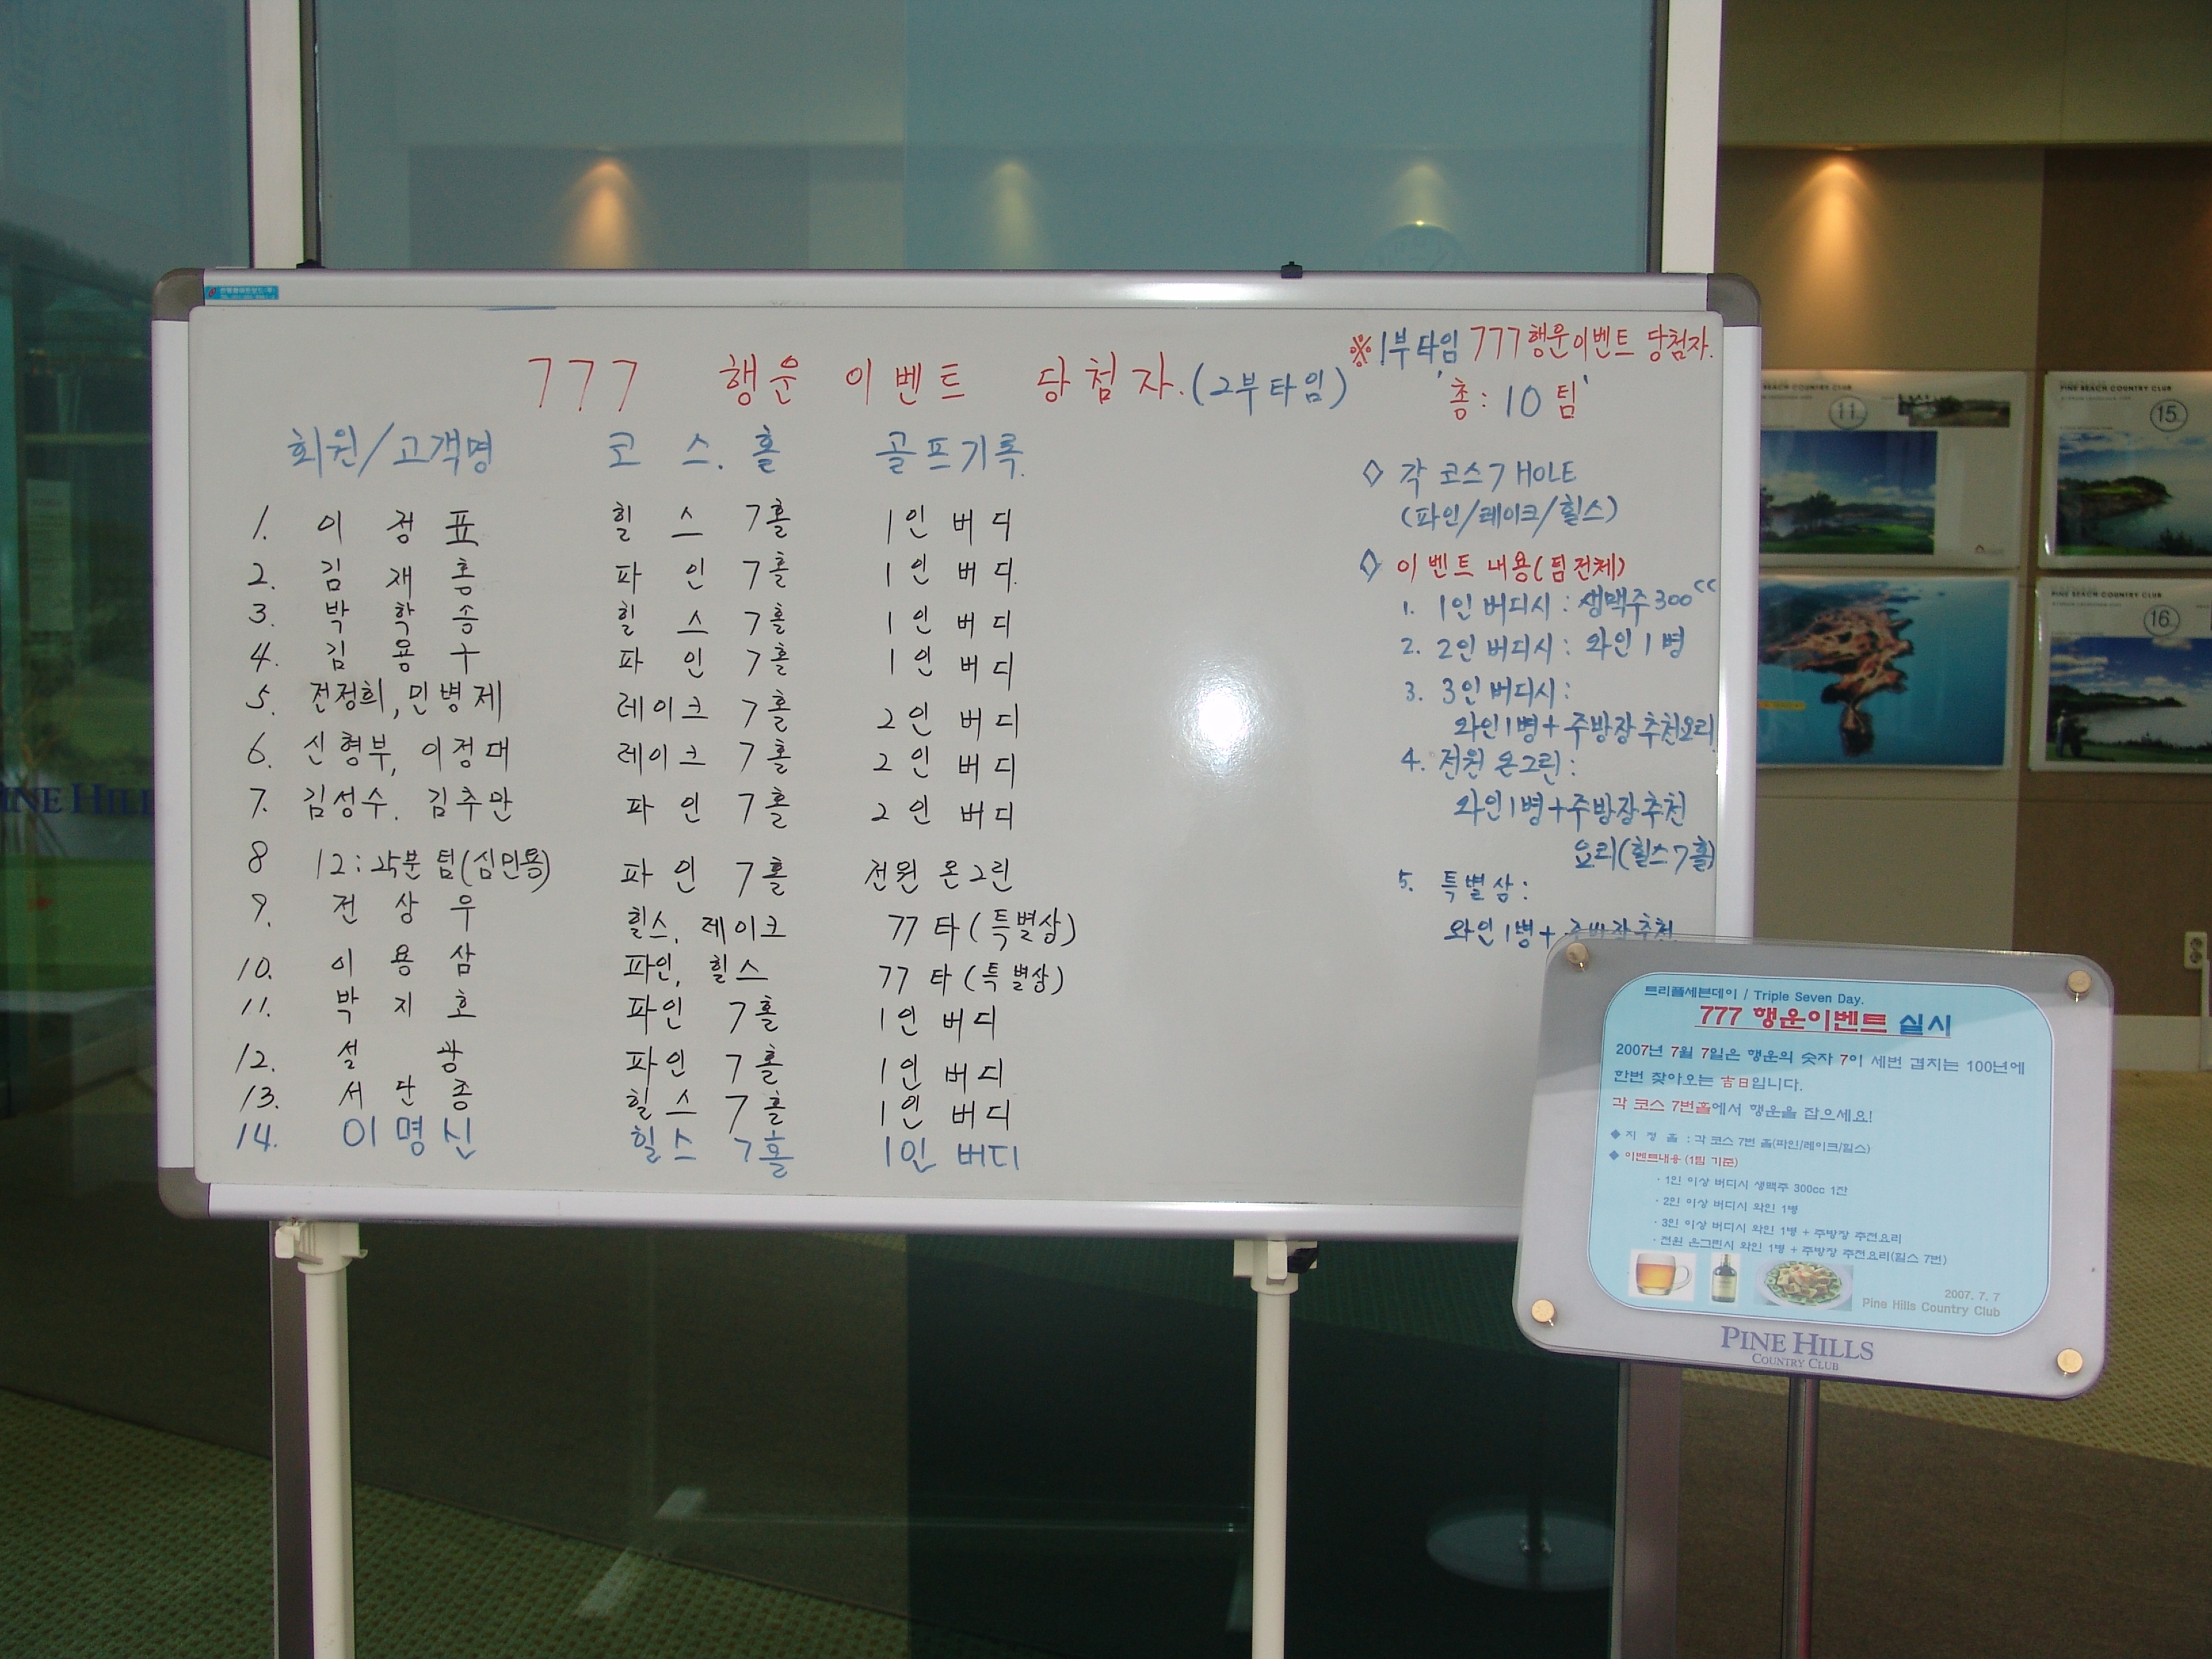 777 행운 이벤트 당첨자.(2부타임)
회원/고객명 코스.홀 골프기록.
1. 이정표 힐스 7홀 1인 버디
2. 김재홍 파인 7홀 1인 버디.
3. 박학송 힐스 7홀 1인 버디
4. 김용구 파인 7홀 1인 버디
5. 전정희, 민병제 레이크 7홀 2인 버디
6. 신형부, 이정대 레이크 7홀 2인 버디
7. 김성수. 김추만 파인 7홀 2인 버디
8 12: 팀(심민용) 파인 7홀 전원 온그린
9. 전상우 힐스, 레이크 77타(특별상)
10. 이용삼 파인, 힐스 77타(특별상)
11. 박지호 파인 7홀 1인 버디
12. 설광 파인 7홀 1인 버디
13. 서단종 힐스 7홀 1인 버디
14. 이명신 힐스 7홀 1인 버디
※1부타임 777행운이벤트 당첨자.
'총: 10팀'
◇ 각 코스 7 HOLE
(파인/레이크/힐스)
◇ 이벤트 내용(팀전체)
1. 1인 버디시 : 생맥주 300cc
2. 2인 버디시 : 와인 1병
3. 3인 버디시 :
와인1병 + 주방장 추천요리
4. 전원 온그린 :
와인1병 + 주방장 추천
요리(힐스 7홀)
5. 특별상 :
와인 1병 + 주방장추천
트리플세븐데이 / Triple Seven Day.
777 행운이벤트 실시
2007년 7월 7일은 행운의 숫자 7이 세번 겹치는 100년에
한번 찾아오는 吉日입니다.
각 코스 7번홀에서 행운을 잡으세요!
◆ 지 정 홀 : 각 코스 7번 홀(파인/레이크/힐스)
◆ 이벤트내용 (1팀 기준)
· 1인 이상 버디시 생맥주 300cc 1잔
· 2인 이상 버디시 와인 1병
· 3인 이상 버디시 와인 1병 + 주방장 추천요리
· 전원 온그린시 와인 1병 + 주방장 추천요리(힐스 7번)
2007. 7. 7
Pine Hills Country Club
PINE HILLS
COUNTRY CLUB
PINE BEACH COUNTRY CLUB
11
PINE BEACH COUNTRY CLUB
15
PINE BEACH COUNTRY CLUB
16
INE HILL